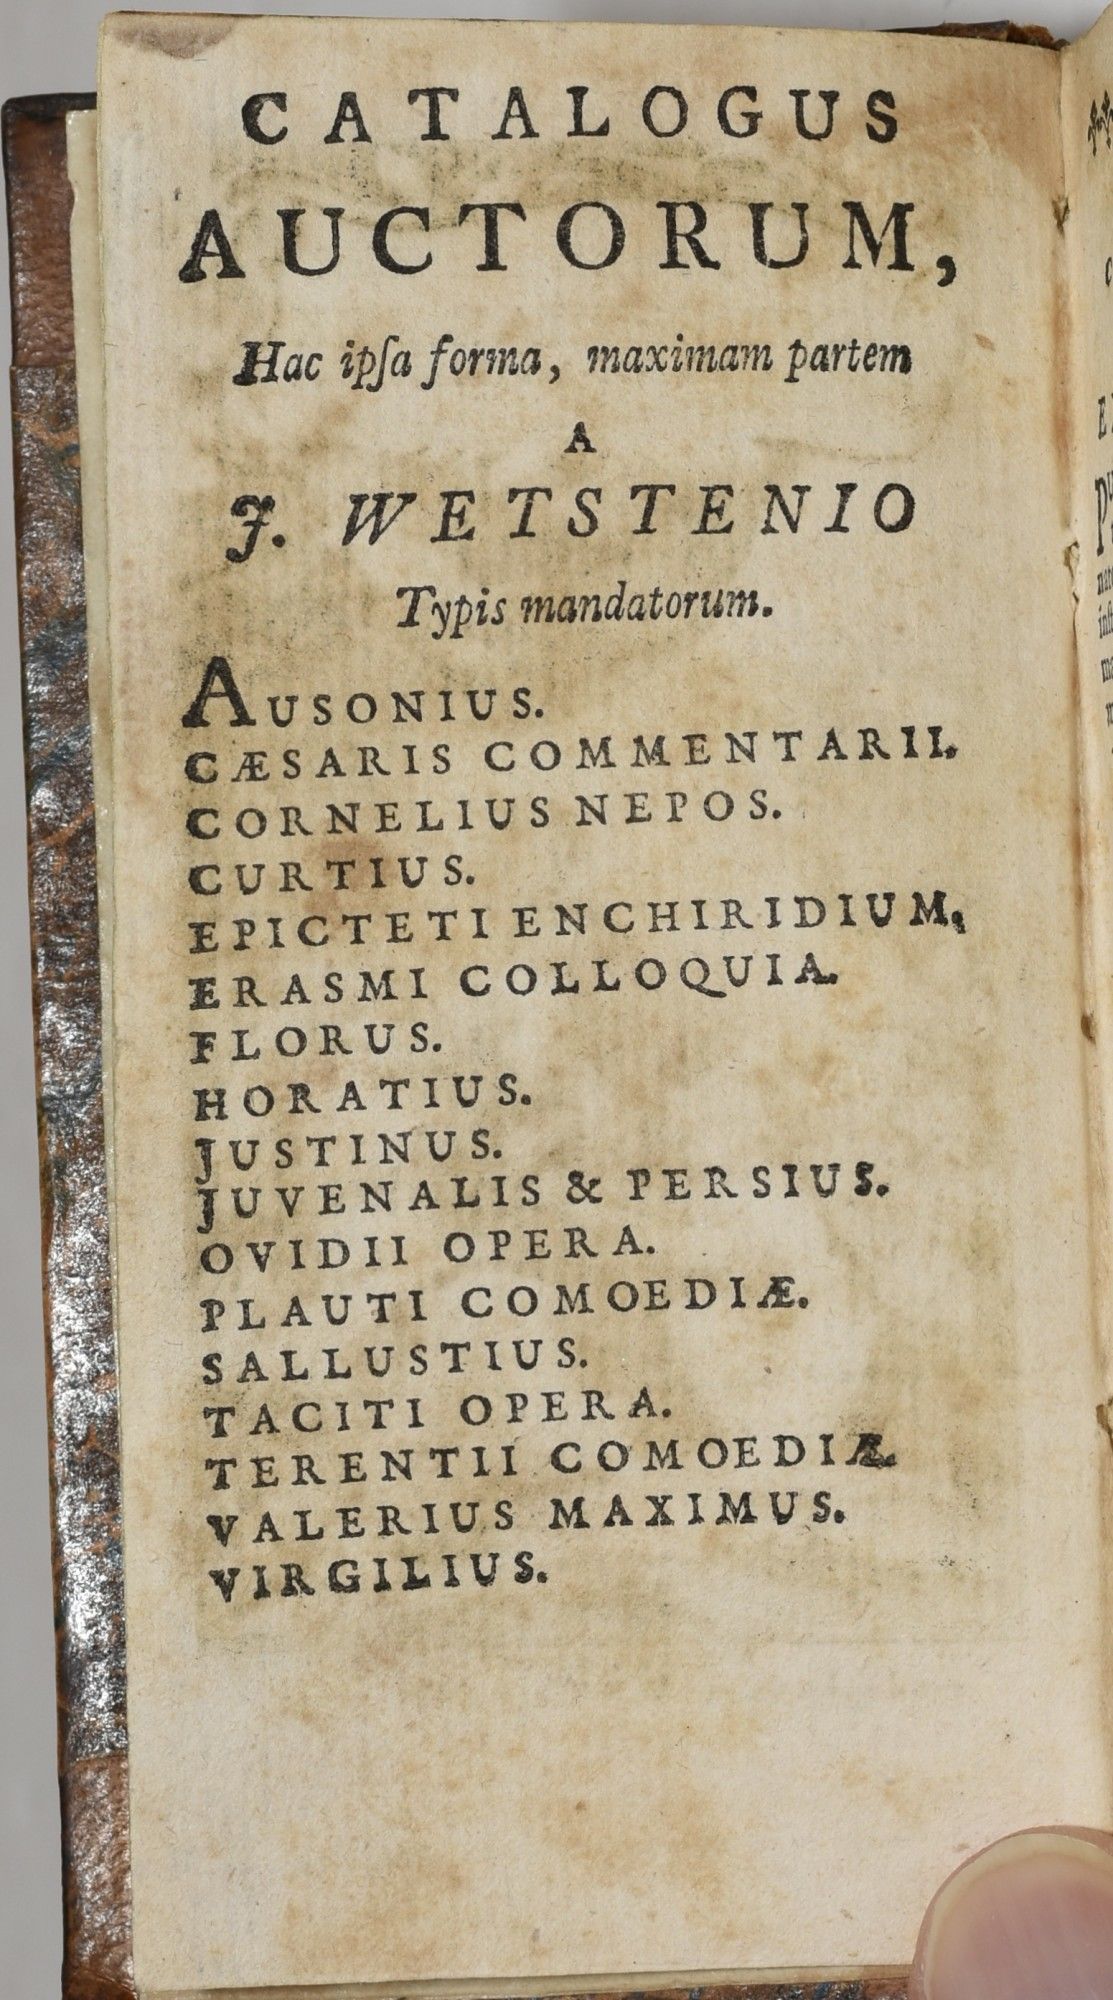 CATALOGUS
AUCTORUM,
Hac ipſa forma, maximam partem
A
J. WETSTENIO
Typis mandatorum.
AUSONIUS.
CÆSARIS COMMENTARII.
CORNELIUS NEPOS.
CURTIUS.
EPICTETI ENCHIRIDIUM.
ERASMI COLLOQUIA.
FLORUS.
HORATIUS.
JUSTINUS.
JUVENALIS & PERSIUS.
OVIDII OPERA.
PLAUTI COMOEDIÆ.
SALLUSTIUS.
TACITI OPERA.
TERENTII COMOEDIÆ.
VALERIUS MAXIMUS.
VIRGILIUS.